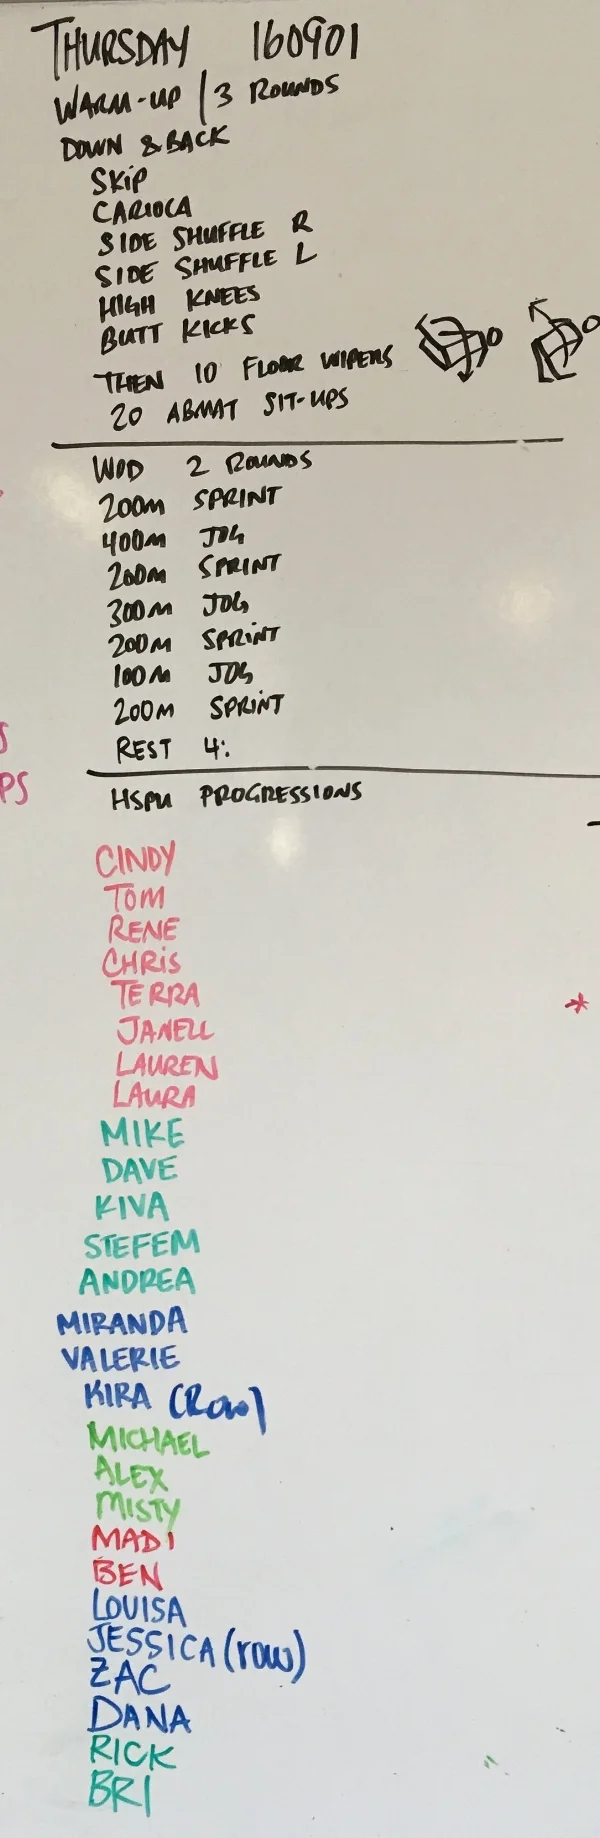 THURSDAY 160901
WARM-UP / 3 ROUNDS
DOWN & BACK
SKIP
CARIOCA
SIDE SHUFFLE R
SIDE SHUFFLE L
HIGH KNEES
BUTT KICKS
THEN 10 FLOOR WIPERS
20 ABMAT SIT-UPS
WOD 2 ROUNDS
200M SPRINT
400M JOG
200M SPRINT
300M JOG
200M SPRINT
100M JOG
200M SPRINT
REST 4:
S
PS
HSPU PROGRESSIONS
CINDY
TOM
RENE
CHRIS
TERRA
JANELL
LAUREN
LAURA
MIKE
DAVE
KIVA
STEFEM
ANDREA
MIRANDA
VALERIE
KIRA (Row)
MICHAEL
ALEX
MISTY
MADI
BEN
LOUISA
JESSICA (row)
ZAC
DANA
RICK
BRI